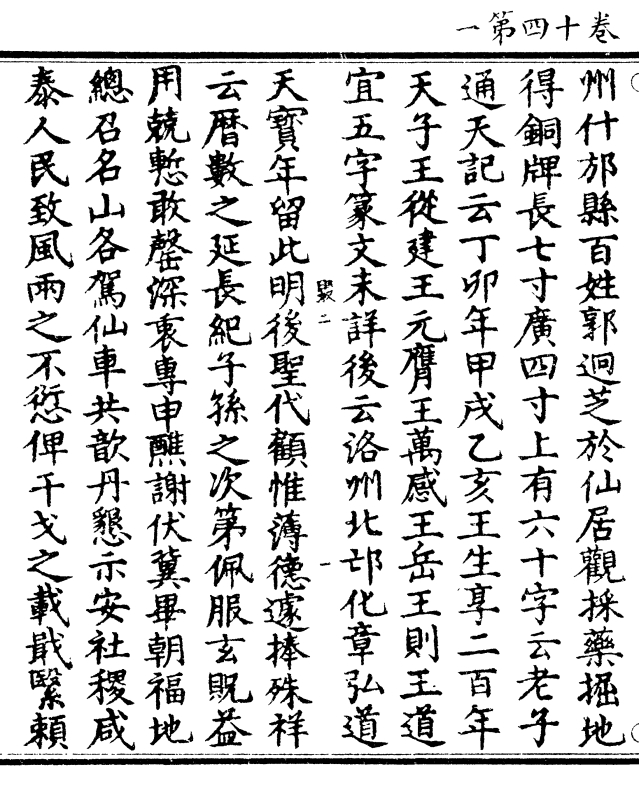 卷十四第一
州什邡縣百姓郭迥芝於仙居觀採藥掘地
得銅牌長七寸廣四寸上有六十字云老子
通天記云丁卯年甲戌乙亥王生享二百年
天子王從建王元膺王萬感王岳王則王道
宜五字篆文未詳後云洛州北邙化章弘道
天寶年留此明後聖代顧惟薄德遽捧殊祥
云曆數之延長紀子孫之次第佩服玄貺益
用兢慙敢罄深衷專申醮謝伏冀畢朝福地
總召名山各駕仙車共歆丹懇示安社稷咸
泰人民致風雨之不愆俾干戈之載戢繄賴